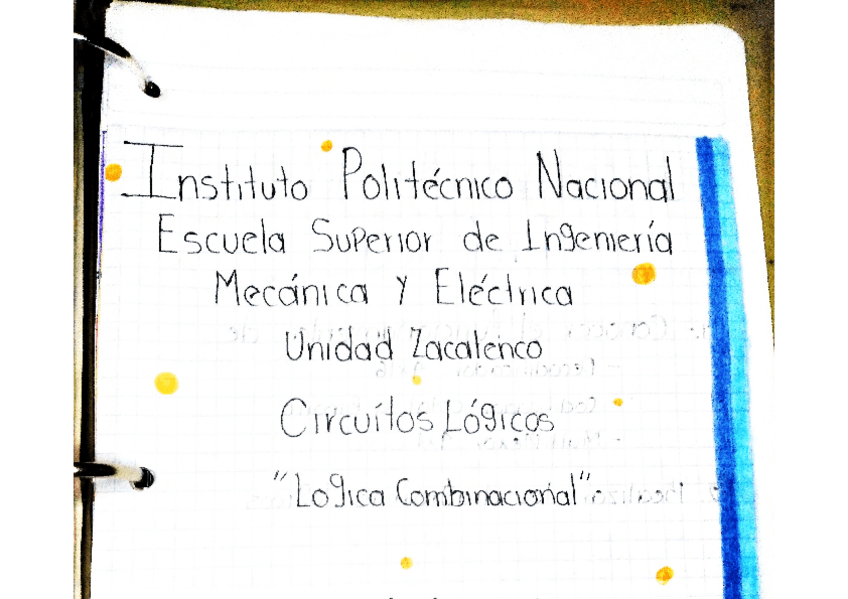 Instituto Politécnico Nacional
Escuela Superior de Ingeniería
Mecánica y Eléctrica
Unidad Zacatenco
Circuítos Lógicos
"Logica Combinacional"